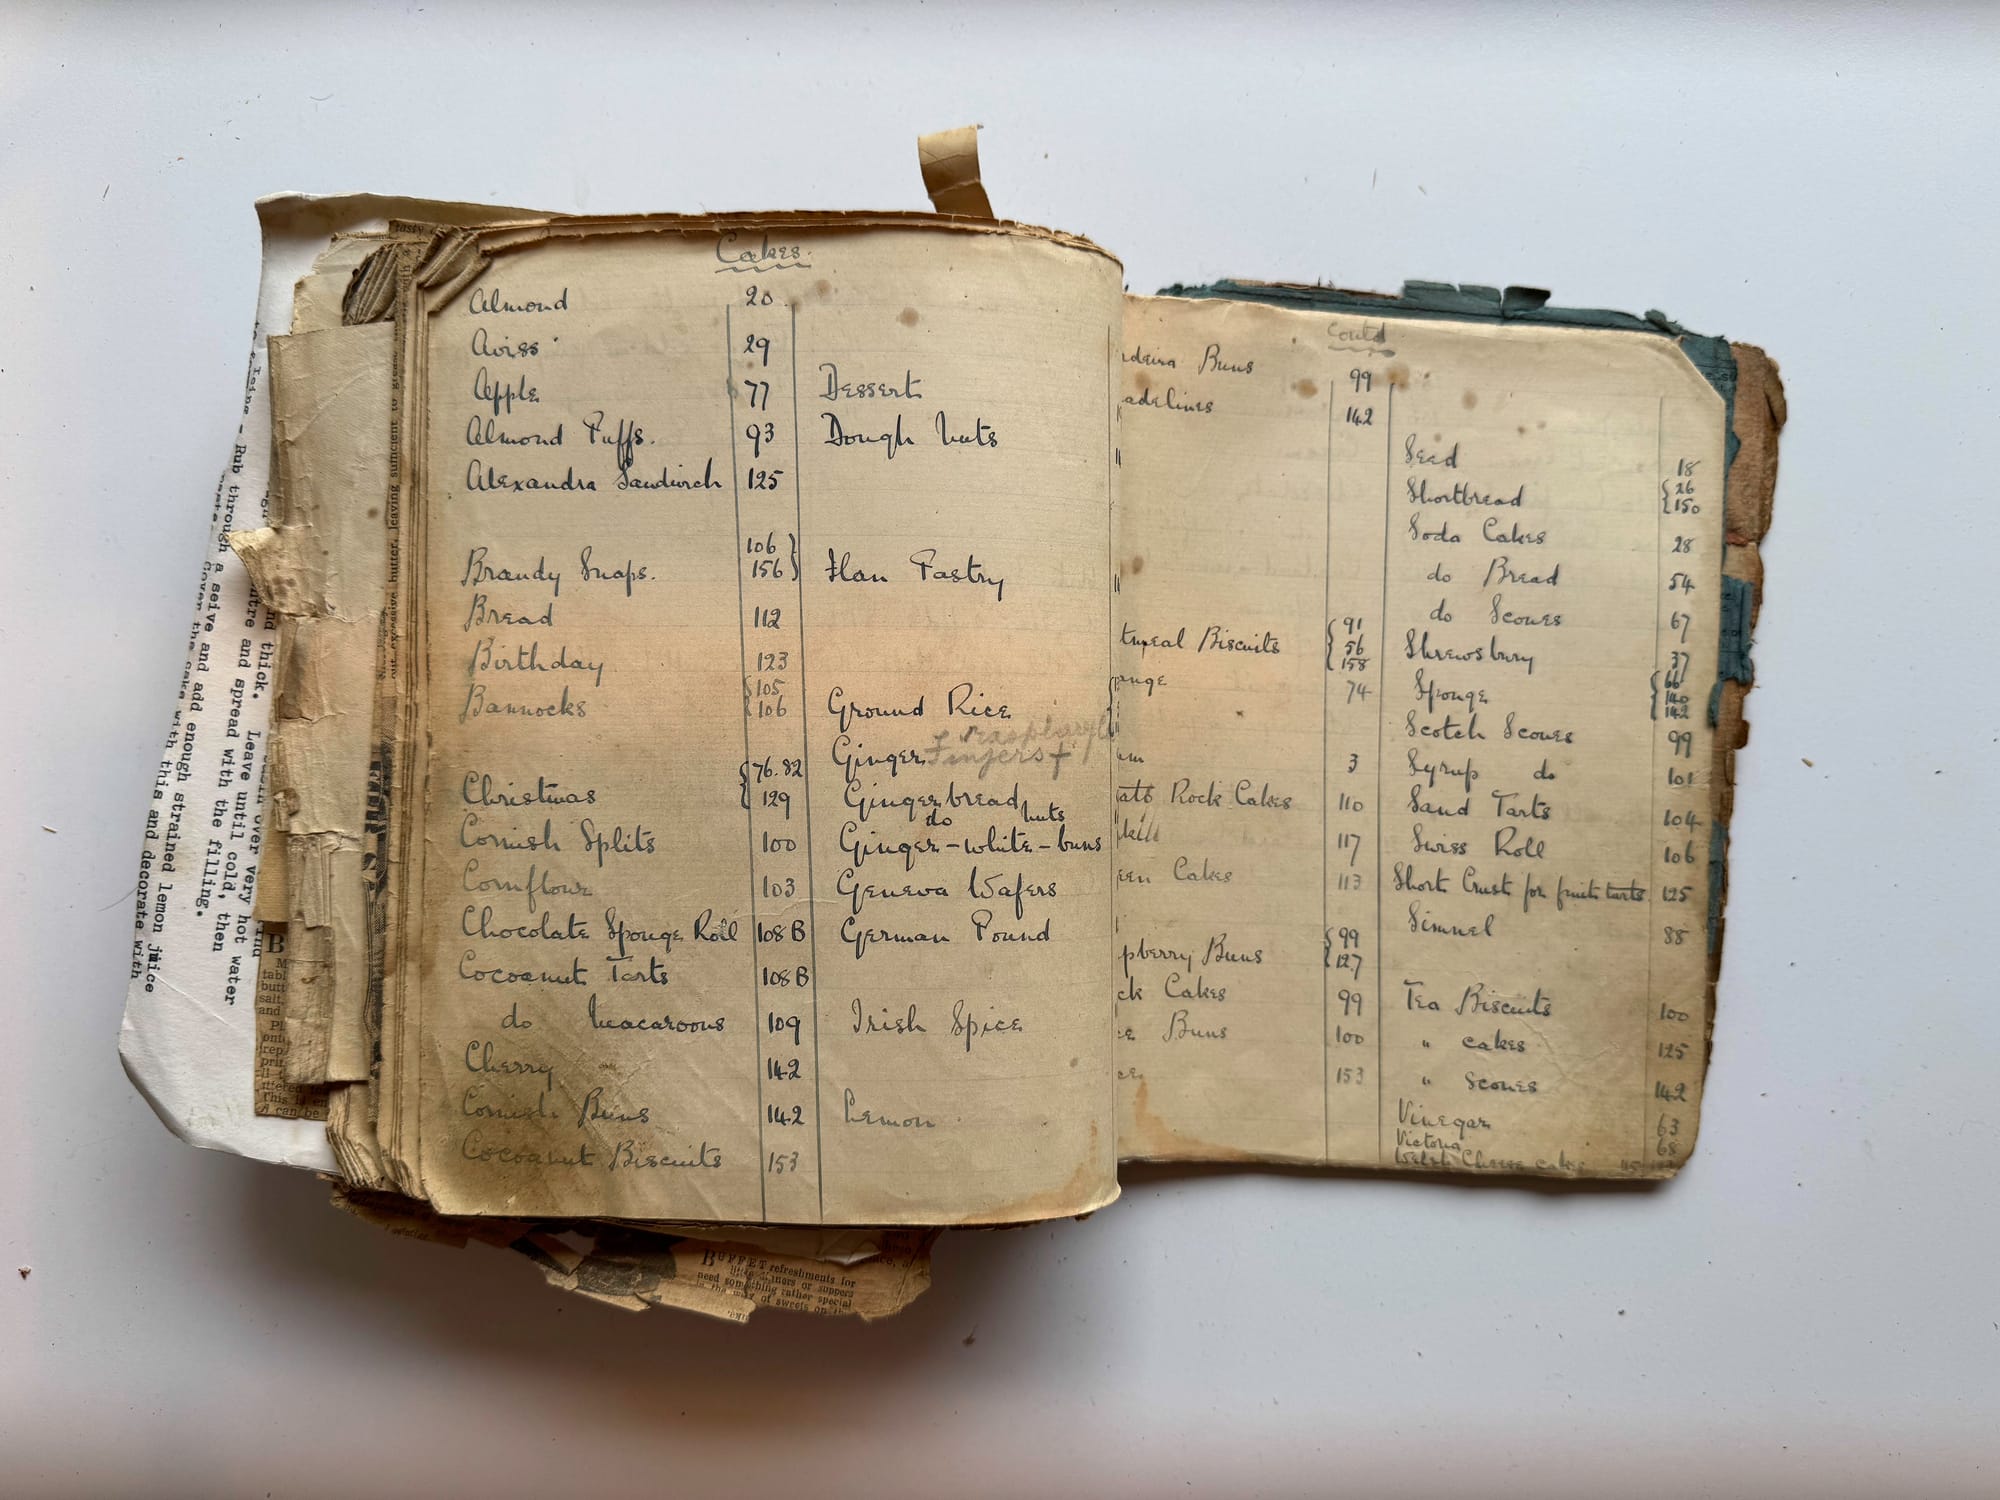 Cakes.
Almond 20
Aviss 29
Apple 77
Almond Puffs. 93
Alexandra Sandwich 125
Brandy Snaps. 106 156
Bread 112
Birthday 123
Bannocks 105 106
Christmas 76.82 129
Cornish Splits 100
Cornflour 103
Chocolate Sponge Roll 108B
Cocoanut Tarts 108B
do Macaroons 109
Cherry 142
Cornish Buns 142
Cocoanut Biscuits 153
Dessert
Dough Nuts
Flan Pastry
Ground Rice
raspberry
Ginger Fingers +
Gingerbread
do Nuts
Ginger-white-buns
Geneva Wafers
German Pound
Irish Spice
Lemon
Contd
deira Buns 99
adelines 142
"
"
tmeal Biscuits 91 56 158
ange 74
um 3
Rock Cakes 110
117
een Cakes 113
pberry Buns 99 127
ck Cakes 99
Buns 100
153
Seed 18
Shortbread 26 150
Soda Cakes 28
do Bread 54
do Scones 67
Shrewsbury 37
Sponge 66 140 142
Scotch Scones 99
Syrup do 101
Sand Tarts 104
Swiss Roll 106
Short Crust for fruit tarts 125
Simnel 88
Tea Biscuits 100
" cakes 125
" Scones 142
Vinegar 63
Victoria 68
Welsh Cheese cakes
Rub through a seive and add enough strained lemon juice
Cover the cake with this and decorate with
and thick. Leave until cold, then
and spread with the filling.
over very hot water
leaving sufficient to grease
out excessive butter,
tasty
BUFFET refreshments for
little dinners or suppers
need something rather special
in the way of sweets on the